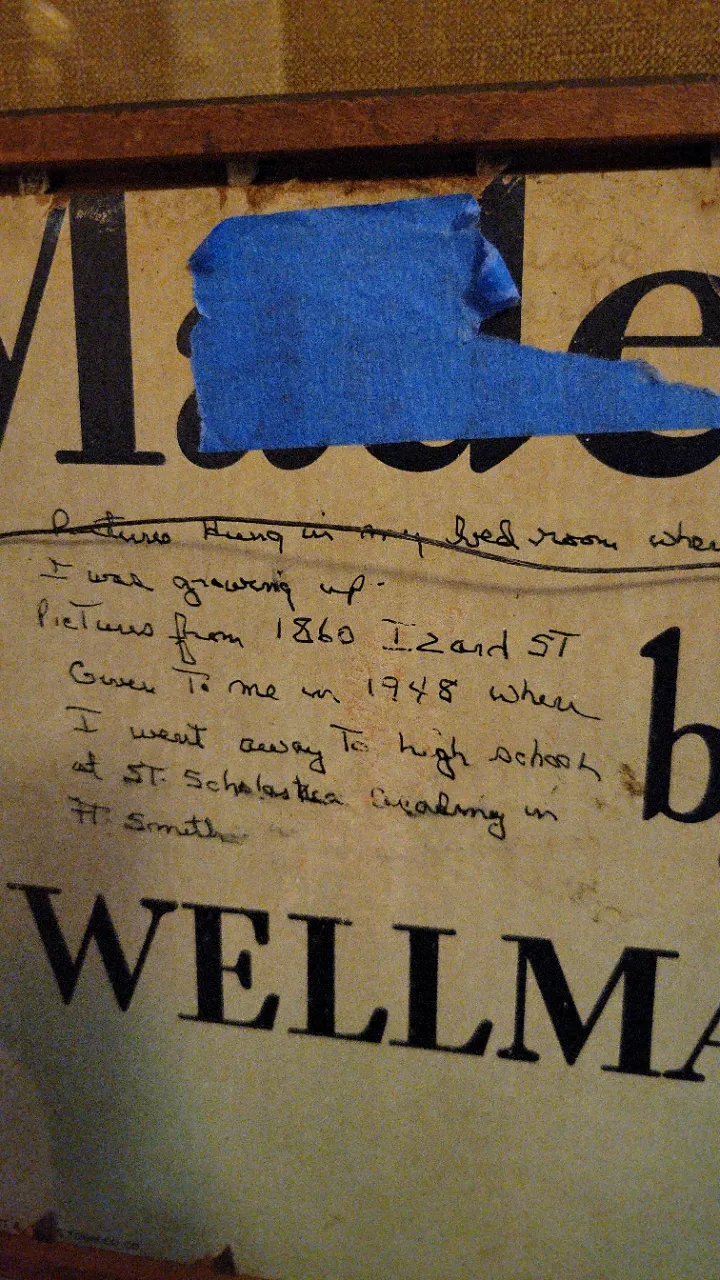 Made
Pictures Hung in my bed room when
I was growing up.
Pictures from 1860 I 2 and ST
Given To me in 1948 when
I went away To high school
at ST. Scholastica Academy in
Ft. Smith
b
WELLMA